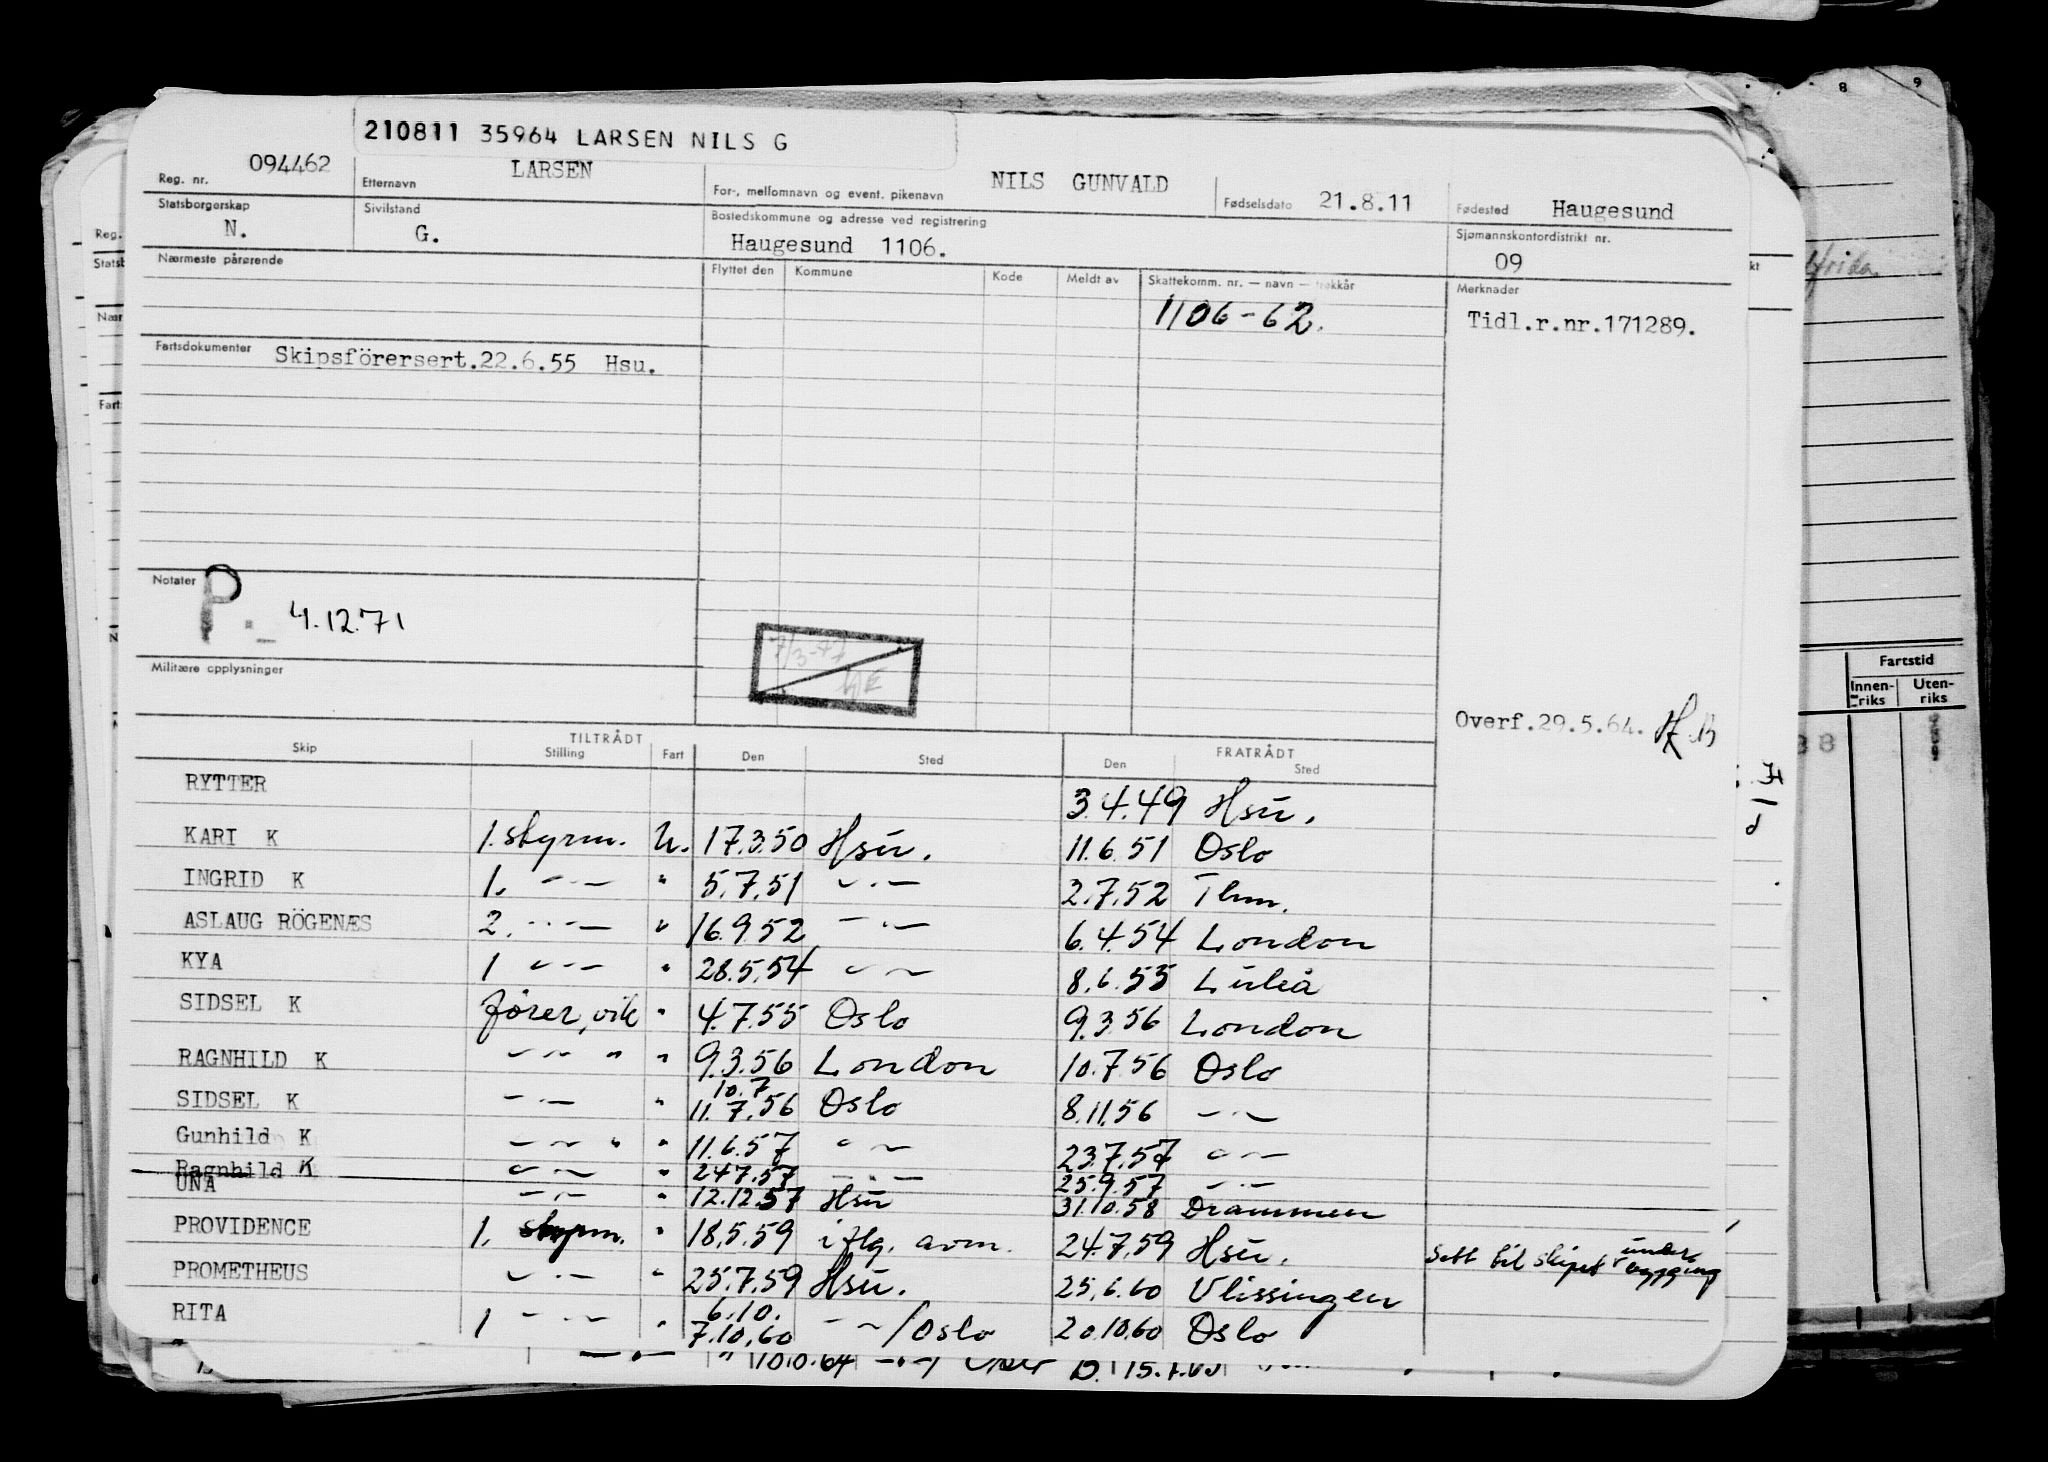 210811 35964 LARSEN NILS G
Reg. nr. 094462 Etternavn LARSEN For-, mellomnavn og event. pikenavn NILS GUNVALD Fødselsdato 21.8.11 Fødested Haugesund
Statsborgerskap N. Sivilstand G. Bostedskommune og adresse ved registrering Haugesund 1106. Sjømannskontordistrikt nr. 09
Nærmeste pårørende Flyttet den Kommune Kode Meldt av Skattekomm. nr. — navn — trekkår Merknader
1106-62. Tidl.r.nr.171289.
Fartsdokumenter Skipsförersert.22.6.55 Hsu.
Notater P. 4.12.71
7/3-77
Militære opplysninger
Overf.29.5.64.
TILTRÅDT FRATRÅDT
Skip Stilling Fart Den Sted Den Sted
RYTTER 3.4.49 Hsu.
KARI K 1.styrm. U. 17.3.50 Hsu. 11.6.51 Oslo
INGRID K 1. -"- " 5.7.51 -"- 2.7.52 Thm.
ASLAUG RÖGENÆS 2. -"- " 16.9.52 -"- 6.4.54 London
KYA 1 -"- " 28.5.54 -"- 8.6.55 Luleå
SIDSEL K fører, vik " 4.7.55 Oslo 9.3.56 London
RAGNHILD K -"- " " 9.3.56 London 10.7.56 Oslo
SIDSEL K -"- " 10.7 11.7.56 Oslo 8.11.56 -"-
Gunhild K -"- " " 11.6.57 -"- 23.7.57 -"-
Ragnhild K -"- " 24.7.57 -"- 25.9.57 -"-
UNA -"- " 12.12.57 Hsu 31.10.58 Drammen
PROVIDENCE 1. styrm. " 18.5.59 iflg. avm. 24.7.59 Hsu. Sett til skipet under bygging
PROMETHEUS -"- " 25.7.59 Hsu. 25.6.60 Vlissingen
RITA 1 -"- " 6.10. 7.10.60 -"-/Oslo 20.10.60 Oslo
Fartstid
Innen-riks Uten-riks
8 9